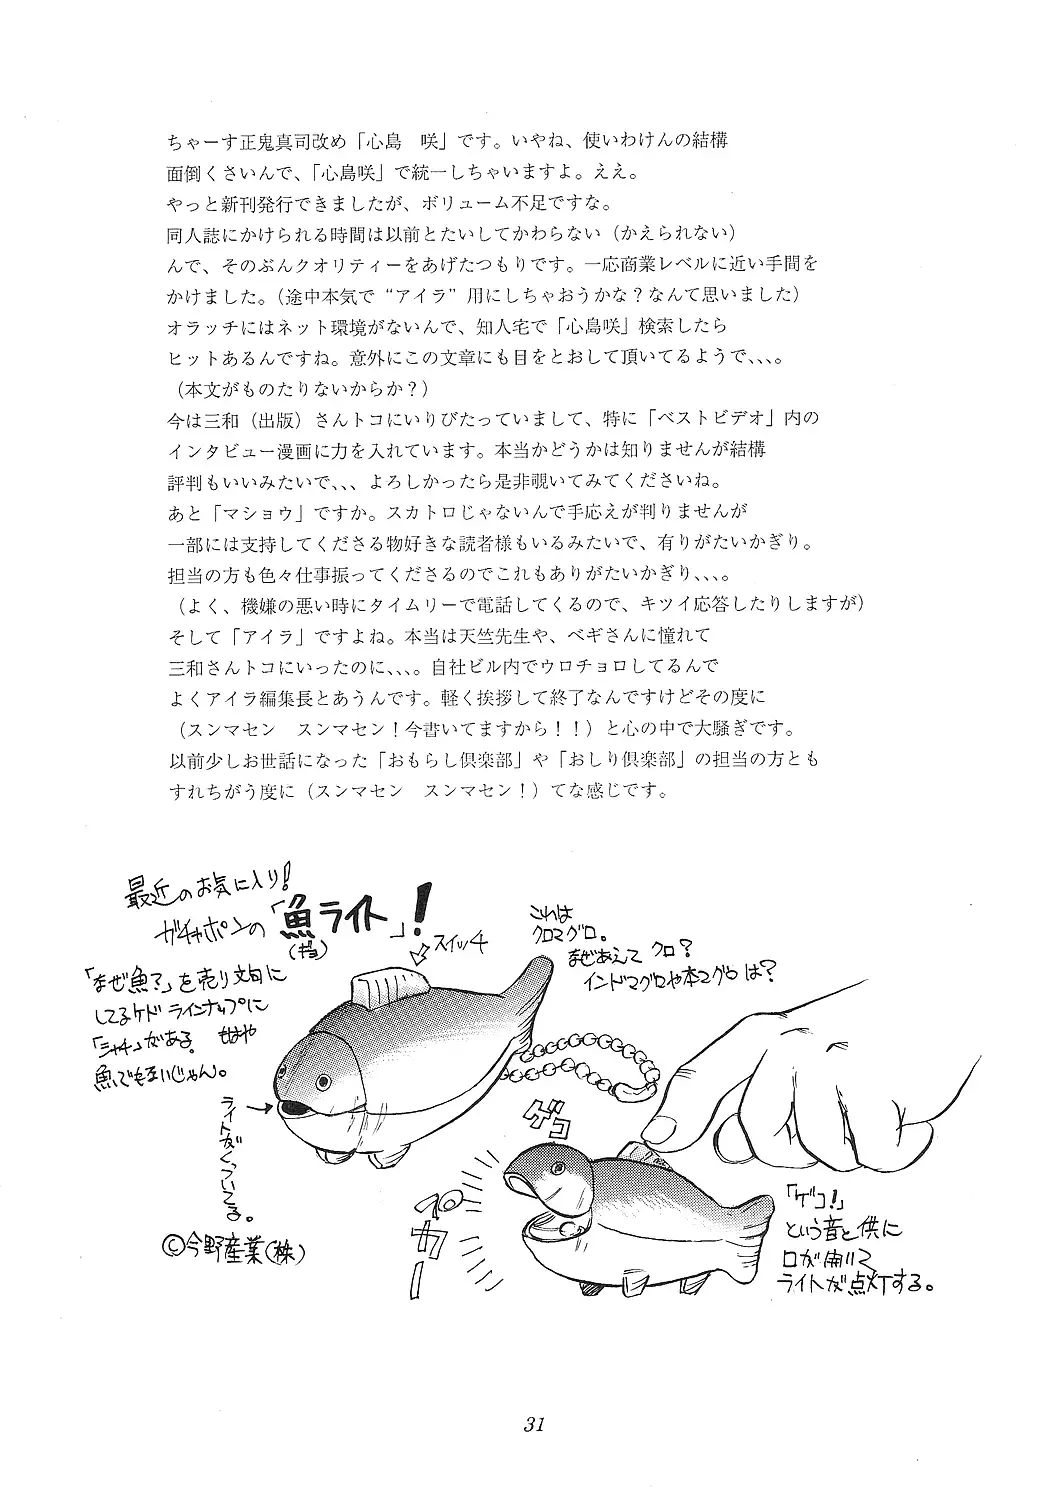 ちゃーす正鬼真司改め「心島　咲」です。いやね、使いわけんの結構
面倒くさいんで、「心島咲」で統一しちゃいますよ。ええ。
やっと新刊発行できましたが、ボリューム不足ですな。
同人誌にかけられる時間は以前とたいしてかわらない（かえられない）
んで、そのぶんクオリティーをあげたつもりです。一応商業レベルに近い手間を
かけました。（途中本気で“アイラ”用にしちゃおうかな？なんて思いました）
オラッチにはネット環境がないんで、知人宅で「心島咲」検索したら
ヒットあるんですね。意外にこの文章にも目をとおして頂いてるようで、、、。
（本文がものたりないからか？）
今は三和（出版）さんトコにいりびたっていまして、特に「ベストビデオ」内の
インタビュー漫画に力を入れています。本当かどうかは知りませんが結構
評判もいいみたいで、、、よろしかったら是非覗いてみてくださいね。
あと「マショウ」ですか。スカトロじゃないんで手応えが判りませんが
一部には支持してくださる物好きな読者様もいるみたいで、有りがたいかぎり。
担当の方も色々仕事振ってくださるのでこれもありがたいかぎり、、、。
（よく、機嫌の悪い時にタイムリーで電話してくるので、キツイ応答したりしますが）
そして「アイラ」ですよね。本当は天竺先生や、ベギさんに憧れて
三和さんトコにいったのに、、、。自社ビル内でウロチョロしてるんで
よくアイラ編集長とあうんです。軽く挨拶して終了なんですけどその度に
（スンマセン　スンマセン！今書いてますから！！）と心の中で大騒ぎです。
以前少しお世話になった「おもらし倶楽部」や「おしり倶楽部」の担当の方とも
すれちがう度に（スンマセン　スンマセン！）てな感じです。
最近のお気に入り！
ガチャポンの「魚ライト」！
（ギョ）
スイッチ
「なぜ魚？」を売り文句に
してるケド ラインナップに
「シャチ」がある。もはや
魚でもないじゃん。
ライトがくっついてる。
©今野産業（株）
これは
クロマグロ。
なぜあえて クロ？
インドマグロや本マグロは？
ゲコ
ペカー
「ゲコ！」
という音と供に
口が開いて
ライトが点灯する。
31